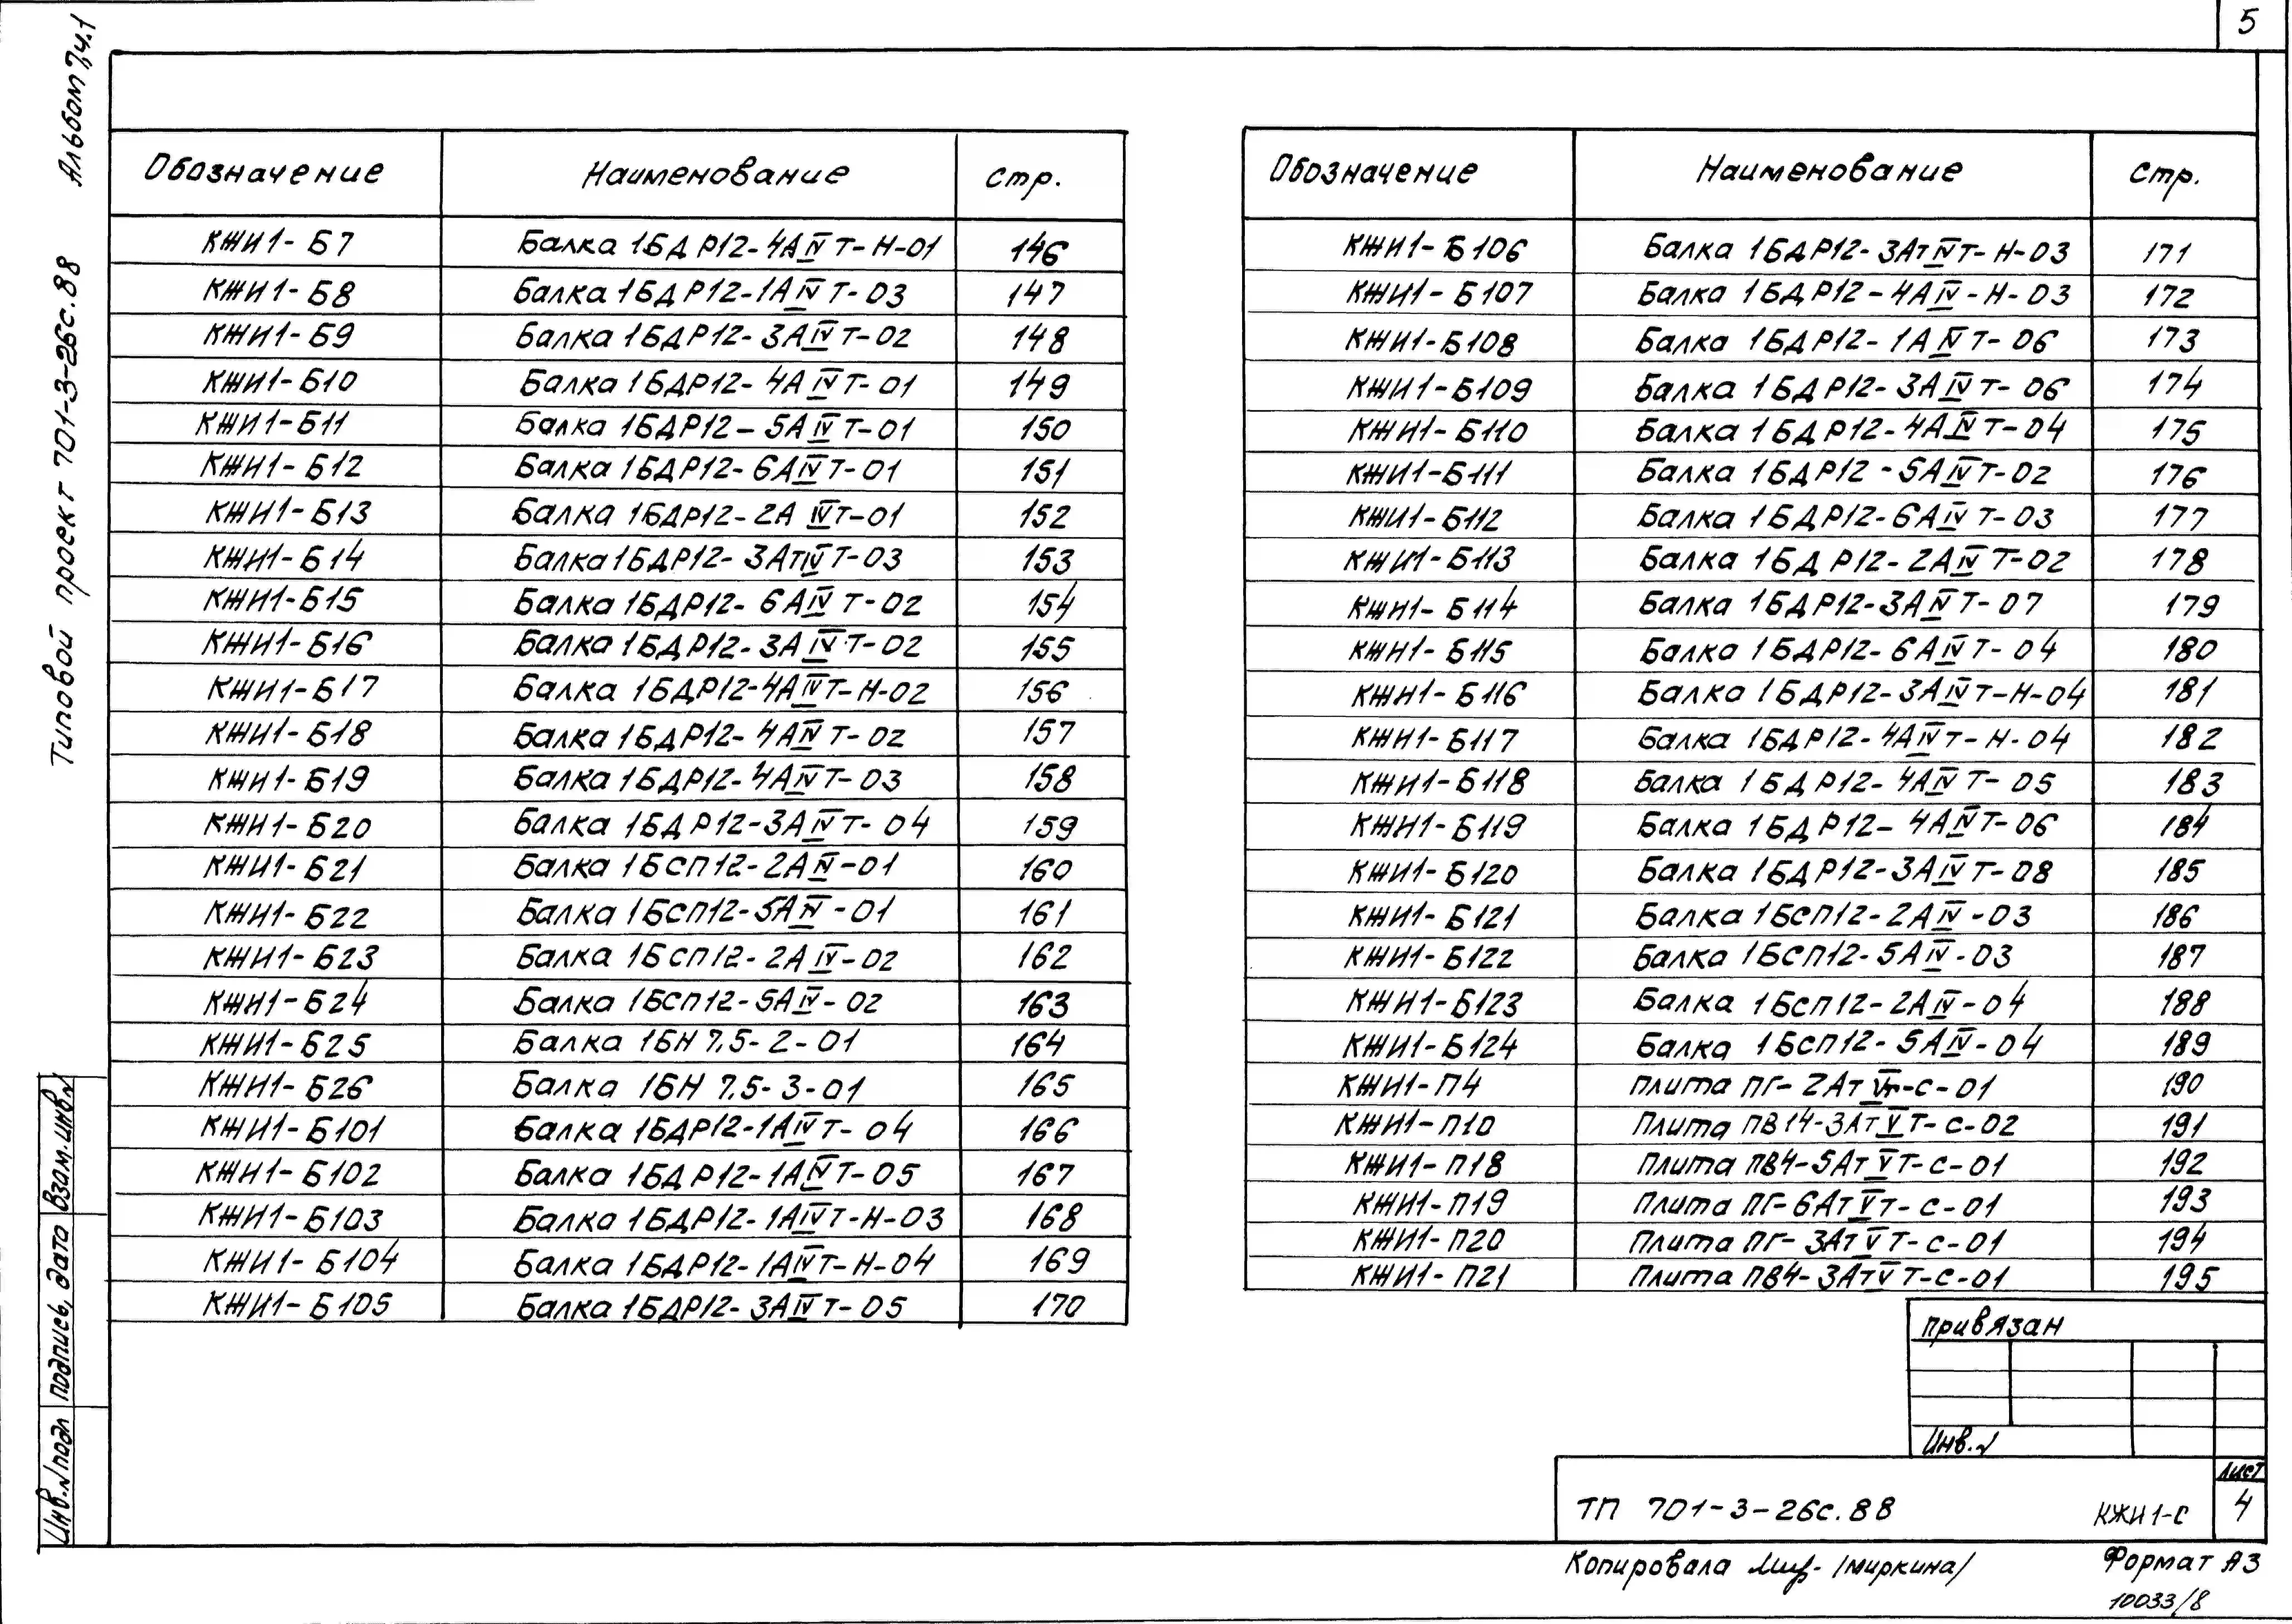 5
Альбом 7, ч.1
Типовой проект 701-3-26с.88
Обозначение Наименование стр.
КЖИ1-Б7 Балка 1БДР12-4АIVТ-Н-01 146
КЖИ1-Б8 Балка 1БДР12-1АIVТ-03 147
КЖИ1-Б9 Балка 1БДР12-3АIVТ-02 148
КЖИ1-Б10 Балка 1БДР12-4АIVТ-01 149
КЖИ1-Б11 Балка 1БДР12-5АIVТ-01 150
КЖИ1-Б12 Балка 1БДР12-6АIVТ-01 151
КЖИ1-Б13 Балка 1БДР12-2АIVТ-01 152
КЖИ1-Б14 Балка 1БДР12-3АтIVТ-03 153
КЖИ1-Б15 Балка 1БДР12-6АIVТ-02 154
КЖИ1-Б16 Балка 1БДР12-3АIVТ-02 155
КЖИ1-Б17 Балка 1БДР12-4АIVТ-Н-02 156
КЖИ1-Б18 Балка 1БДР12-4АIVТ-02 157
КЖИ1-Б19 Балка 1БДР12-4АIVТ-03 158
КЖИ1-Б20 Балка 1БДР12-3АIVТ-04 159
КЖИ1-Б21 Балка 1БСП12-2АIV-01 160
КЖИ1-Б22 Балка 1БСП12-5АIV-01 161
КЖИ1-Б23 Балка 1БСП12-2АIV-02 162
КЖИ1-Б24 Балка 1БСП12-5АIV-02 163
КЖИ1-Б25 Балка 1БН 7.5-2-01 164
КЖИ1-Б26 Балка 1БН 7.5-3-01 165
КЖИ1-Б101 Балка 1БДР12-1АIVТ-04 166
КЖИ1-Б102 Балка 1БДР12-1АIVТ-05 167
КЖИ1-Б103 Балка 1БДР12-1АIVТ-Н-03 168
КЖИ1-Б104 Балка 1БДР12-1АIVТ-Н-04 169
КЖИ1-Б105 Балка 1БДР12-3АIVТ-05 170
Обозначение Наименование стр.
КЖИ1-Б106 Балка 1БДР12-3АтIVТ-Н-03 171
КЖИ1-Б107 Балка 1БДР12-4АIV-Н-03 172
КЖИ1-Б108 Балка 1БДР12-1АIVТ-06 173
КЖИ1-Б109 Балка 1БДР12-3АIVТ-06 174
КЖИ1-Б110 Балка 1БДР12-4АIVТ-04 175
КЖИ1-Б111 Балка 1БДР12-5АIVТ-02 176
КЖИ1-Б112 Балка 1БДР12-6АIVТ-03 177
КЖИ1-Б113 Балка 1БДР12-2АIVТ-02 178
КЖИ1-Б114 Балка 1БДР12-3АIVТ-07 179
КЖИ1-Б115 Балка 1БДР12-6АIVТ-04 180
КЖИ1-Б116 Балка 1БДР12-3АIVТ-Н-04 181
КЖИ1-Б117 Балка 1БДР12-4АIVТ-Н-04 182
КЖИ1-Б118 Балка 1БДР12-4АIVТ-05 183
КЖИ1-Б119 Балка 1БДР12-4АIVТ-06 184
КЖИ1-Б120 Балка 1БДР12-3АIVТ-08 185
КЖИ1-Б121 Балка 1БСП12-2АIV-03 186
КЖИ1-Б122 Балка 1БСП12-5АIV-03 187
КЖИ1-Б123 Балка 1БСП12-2АIV-04 188
КЖИ1-Б124 Балка 1БСП12-5АIV-04 189
КЖИ1-П4 Плита ПГ-2АтVТ-С-01 190
КЖИ1-П10 Плита ПВ14-3АтVТ-С-02 191
КЖИ1-П18 Плита ПВ4-5АтVТ-С-01 192
КЖИ1-П19 Плита ПГ-6АтVТ-С-01 193
КЖИ1-П20 Плита ПГ-3АтVТ-С-01 194
КЖИ1-П21 Плита ПВ4-3АтVТ-С-01 195
привязан
Инв.№
ТП 701-3-26с.88 КЖИ1-С
лист
4
Инв.№подл подпись, дата Взам.инв№
Копировала /миркина/ Формат А3
10033/8